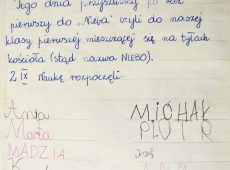 Tego dnia przyszliśmy po raz
pierwszy do „Nieba” czyli do naszej
klasy pierwszej mieszczącej się na tyłach
kościoła (stąd nazwa NIEBO).
2 IX Naukę rozpoczęli:
Ania
MICHAŁ
Marta
PIOTR
MADZIA